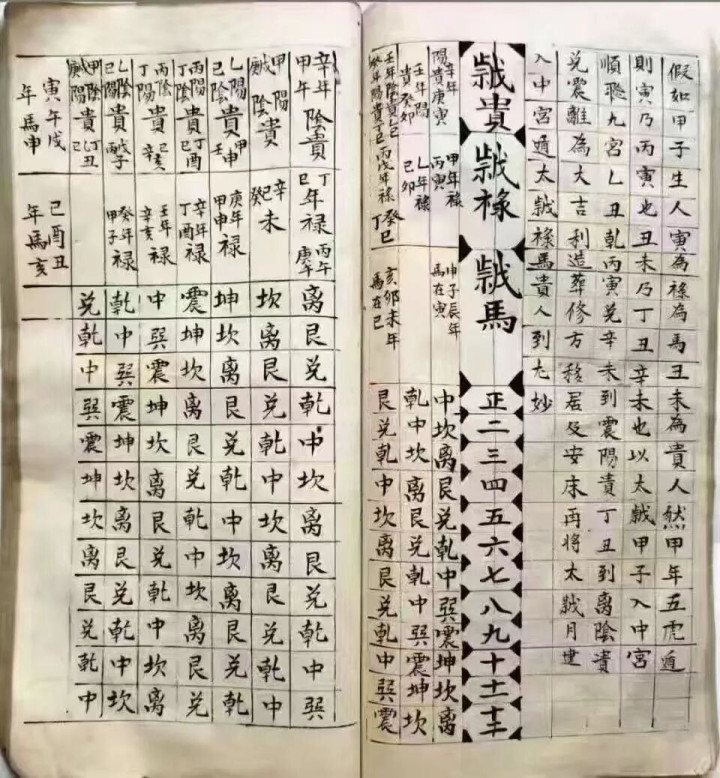 假如甲子生人寅為祿為馬丑未為貴人然甲年五虎遁
則寅乃丙寅也丑未乃丁丑辛未也以太歲甲子入中宮
順聼九宮乙丑乾丙寅兌辛未到震陽貴丁丑到离陰貴
兌震離為大吉利造葬修方移居及安床再將太歲月建
入中宮遁太歲祿馬貴人到尤妙
歲貴 歲祿 歲馬 正 二 三 四 五 六 七 八 九 十 十一 十二
辛年陽貴庚寅 甲年祿丙寅 申子辰年馬在寅 中 坎 离 艮 兌 乾 中 巽 震 坤 坎 离
壬年陽貴癸卯 乙年祿己卯 乾 中 坎 离 艮 兌 乾 中 巽 震 坤 坎
壬年陰貴乙巳 癸年陽貴丁巳 丙戊年祿癸巳 亥卯未年馬在巳 艮 兌 乾 中 坎 离 艮 兌 乾 中 巽 震
辛年陰貴甲午 丁己年祿丙午庚午 离 艮 兌 乾 中 坎 离 艮 兌 乾 中 巽
甲陽戊陰貴 辛未癸未 坎 离 艮 兌 乾 中 坎 离 艮 兌 乾 中
乙陽己陰貴壬申甲申 庚年祿甲申 坤 坎 离 艮 兌 乾 中 坎 离 艮 兌 乾
丙陽丁陰貴丁酉己酉 辛年祿丁酉 震 坤 坎 离 艮 兌 乾 中 坎 离 艮 兌
丙陰丁陽貴己亥辛亥 壬年祿辛亥 中 巽 震 坤 坎 离 艮 兌 乾 中 坎 离
乙陰己陽貴丙子戊子 癸年祿甲子 乾 中 巽 震 坤 坎 离 艮 兌 乾 中 坎
甲陰戊陽貴丁丑己丑 兌 乾 中 巽 震 坤 坎 离 艮 兌 乾 中
寅午戌年馬申 巳酉丑年馬亥